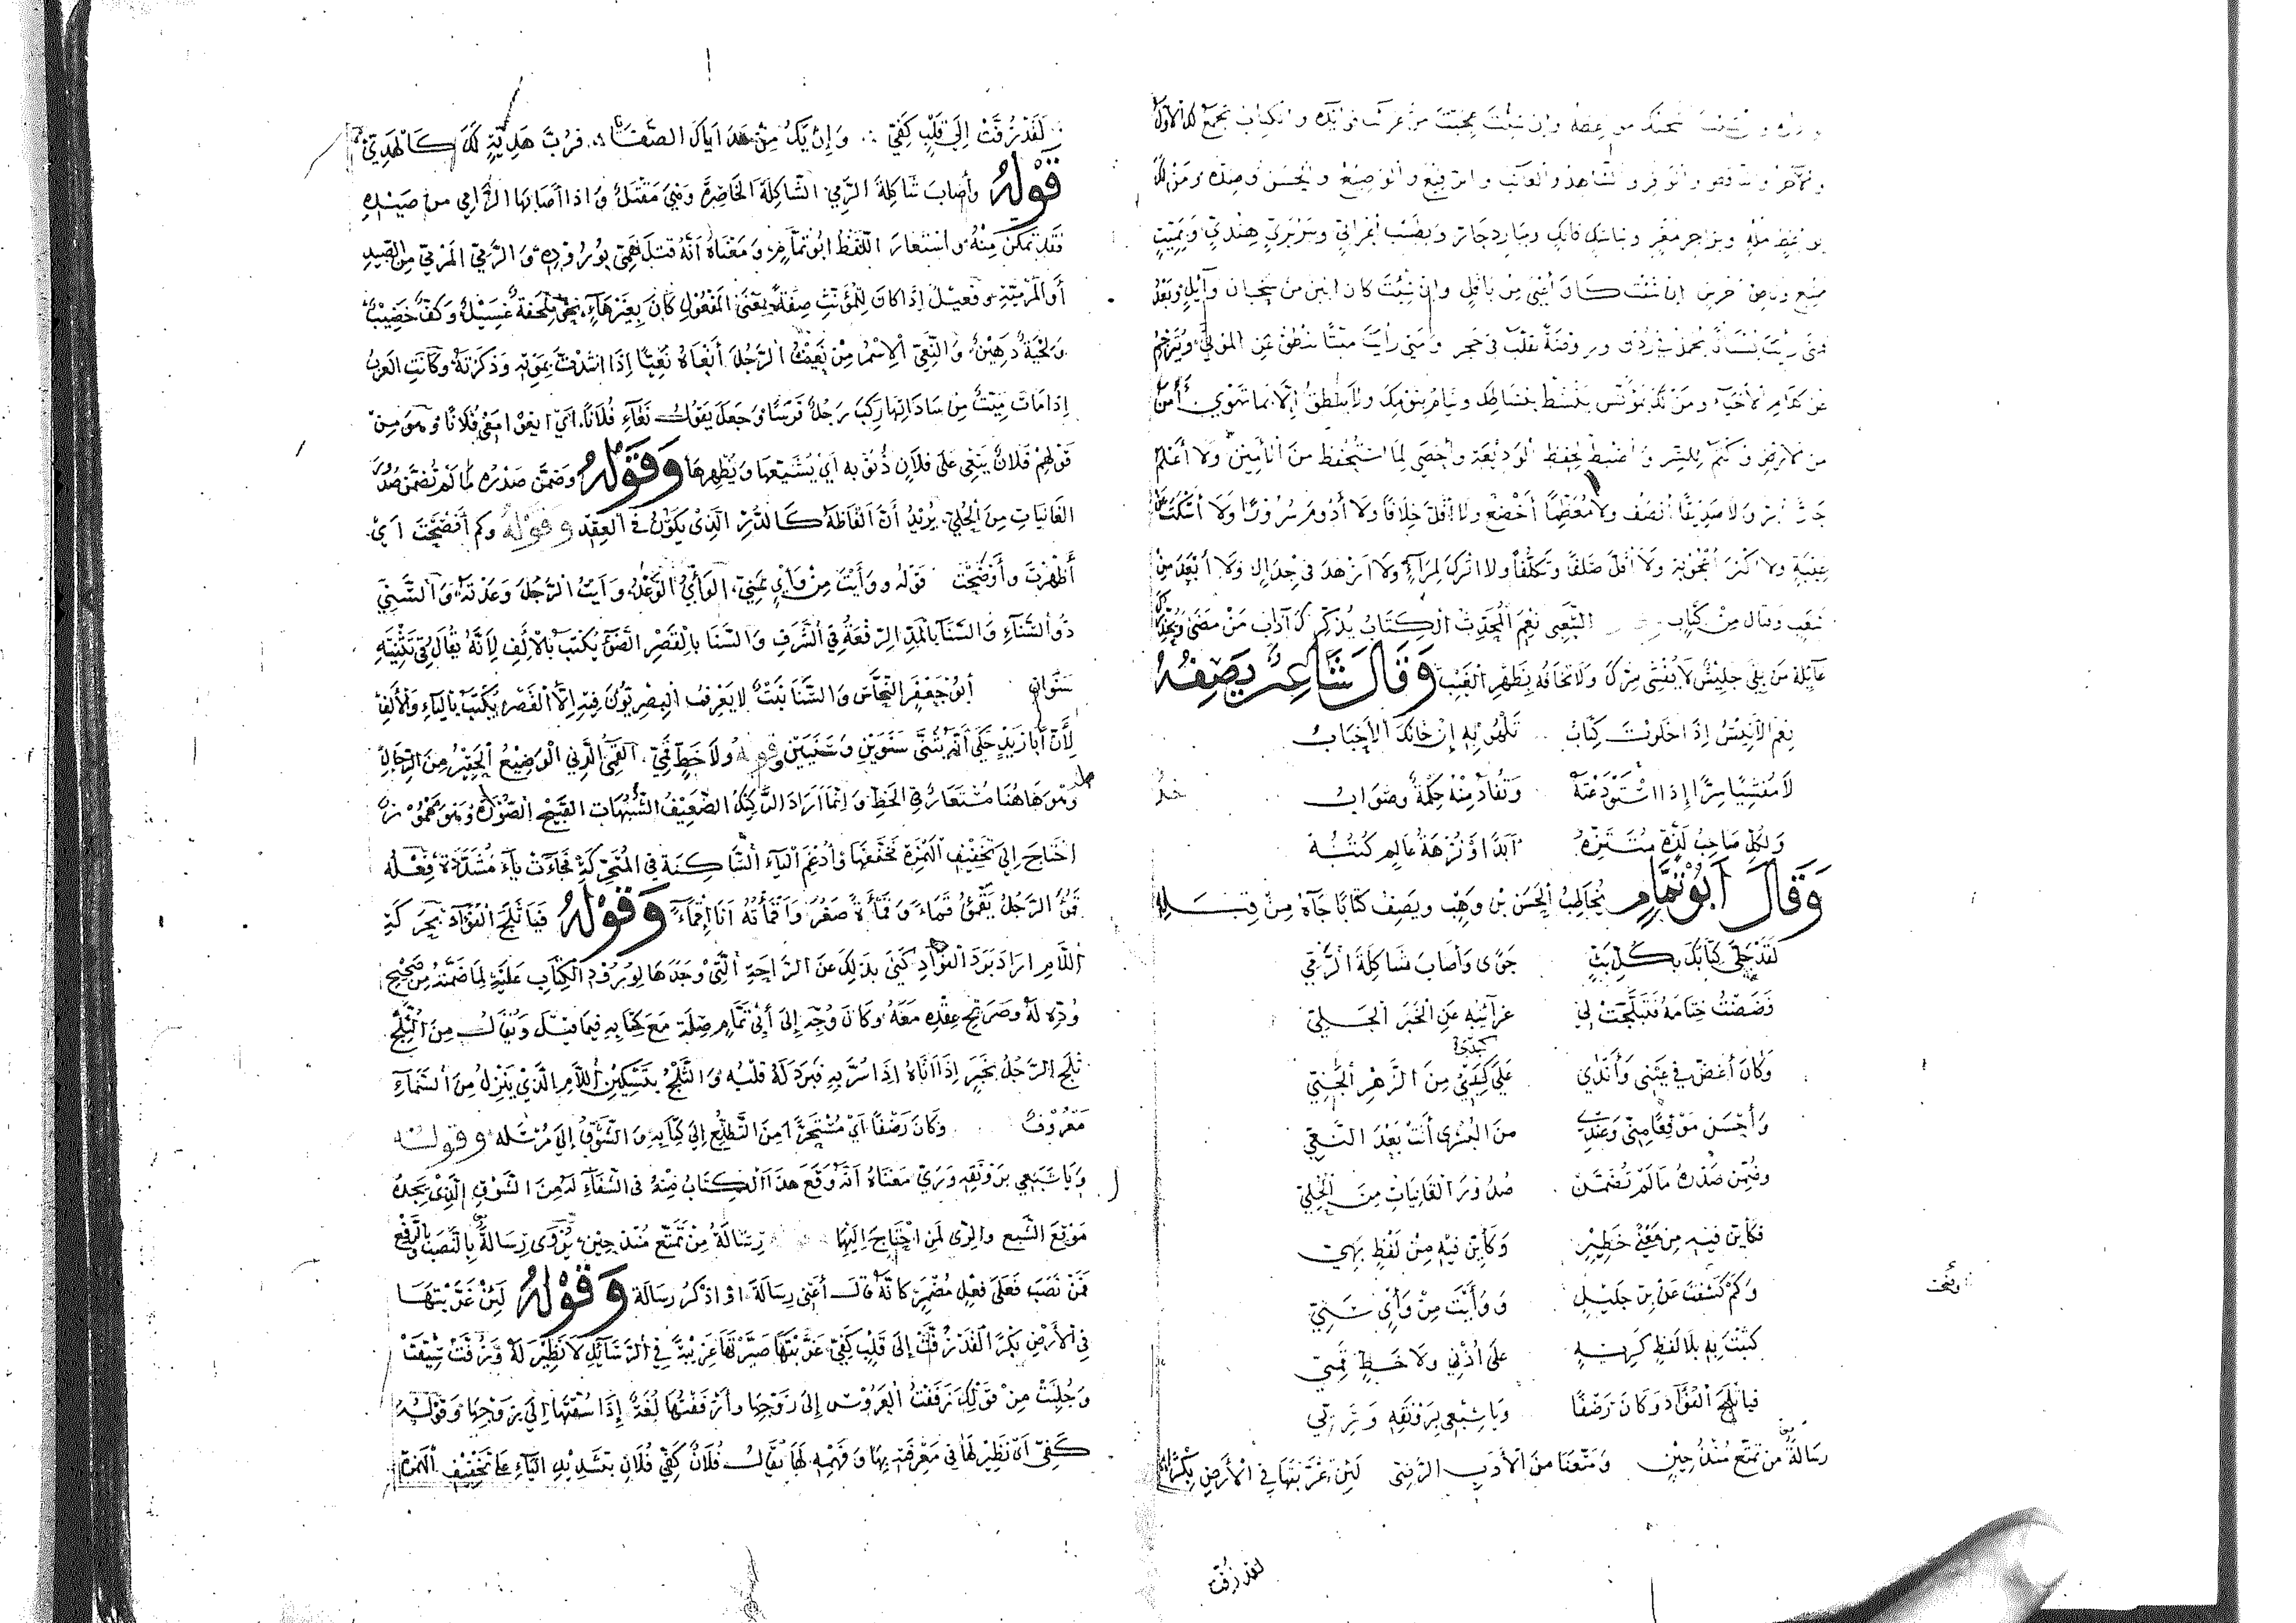 وان شئت عجبت من غرائب فوائده والكتاب يجمع لك الأول
والآخر والناقص والوافر والشاهد والغائب والرفيع والوضيع والحسن وضده ومن لك
بواعظ مله وبزاجر مغر وبناسك فاتك وببارد حار وبطبيب أعرابي وبروميّ هنديّ وبميت
إن شئت كان أعيى من باقل وإن شئت كان أبين من سحبان وائل وبعد
فمتى رأيت بستانًا يحمل في ردن وروضة تقلب في حجر ومتى رأيت ميتًا ينطق عن الموتى ويترجم
عن كلام الأحياء ومن لك بمؤنس ينشط بنشاطك وينام بنومك ولا ينطق إلا بما تهوى آمن
من الأرض وأكتم للسر وأضبط لحفظ الوديعة وأحصى لما استحفظ من الأميين ولا أعلم
جارًا أبرّ ولا صديقًا أنصف ولا معظمًا أخضع ولا أقل خلافًا ولا أدوم سرورًا ولا أسكت عن
غيبة ولا أكثر أعجوبة ولا أقل صلفًا وتكلفًا ولا أترك لمراء ولا أزهد في جدال ولا أبعد من
شغب وقال من كتاب نعم المحدث الكتاب يذكرك آداب من مضى
جليس لا يفشى سرك ولا تخافه بظهر الغيب وقال شاعر يصفه
نعم الأنيس إذا خلوت كتاب تلهو به إن خانك الأحباب
لا مفشيا سرا إذا استودعته وتفاد منه حكمة وصواب
ولكل صاحب لذة متنزه أبدا ونزهة عالم كتبه
وقال أبو تمام يخاطب الحسن بن وهب ويصف كتابا جاءه من قبله
لقد جلى كتابك كل بث جوى وأصاب شاكلة الرمي
فضضت ختامه فتبلجت لي غرائبه عن الخبر الجلي
وكان أغض في عيني وأندى على كبدي من الزهر الجني
كبدي
وأحسن موقعا مني وعندي من البشرى أتت بعد النعي
وضمن صدره ما لم تضمن صدور الغانيات من الحلي
فكائن فيه من معنى خطير وكائن فيه من لفظ بهي
وكم كشفت عن بر جليل ووأيت من وأي سني
كتبت به بلا لفظ كريه على أذن ولا خط قمي
فيا ثلج الفؤاد وكان رضفا ويا شبعي برونقه وريي
رسالة من تمتع منذ حين ومتعنا من الأدب الرضي لئن غربتها في الأرض بكرا
لقد زفت
لقد زفت إلى قلب كفي وإن يك من هداياك الصفايا فرب هدية لك كالهدي
قوله وأصاب شاكلة الرمي الشاكلة الخاصرة وهي مقتل وإذا أصابها الرامي من صيده
فقد تمكن منه واستعار اللفظ أبو تمام ومعناه أنه قتل همي بوروده والرمي المرمي من الصيد
أو المرمية وفعيل إذا كان للمؤنث صفة بمعنى المفعول كان بغير هاء نحو ملحفة غسيل وكف خضيب
ولحية دهين والنعي الاسم من نعيت الرجل أنعاه نعيا إذا أشدت بموته وذكرته وكانت العرب
إذا مات ميت من ساداتها ركب رجل فرسا وجعل يقول نعاء فلانا أي انعوا فلانا وهو من
قولهم فلان ينعي على فلان ذنوبه أي يشيعها ويظهرها وقوله وضمن صدره ما لم تضمن صدور
الغانيات من الحلي يريد أن ألفاظه كالدر الذي يكون في العقد وقوله وكم أفصحت أي
أظهرت وأوضحت قوله ووأيت من وأي سني الوأي الوعد وأيت الرجل وعدته والسني
ذو السناء والسناء بالمد الرفعة في الشرف والسنا بالقصر الضوء يكتب بالألف لأنه يقال في تثنيته
سنوان أبو جعفر النحاس والسنا نبت لا يعرف البصريون فيه إلا القصر يكتب بالياء والألف
لأن أبا زيد حكى أنه يثنى سنوين وسنيين وقوله ولا خط قمي القمي الدني الوضيع الحقير من الرجال
وهو هاهنا مستعار في الخط وإنما أراد الركيك الضعيف القبيح الصورة وهو مهموز
احتاج إلى تخفيف الهمزة فخففها وأدغم الياء الساكنة في المتحركة فجاءت ياء مشددة فعله
قمؤ الرجل يقمؤ قماء وقمأة صغر وأقمأته أنا إقماء وقوله فيا ثلج الفؤاد بحركة
اللام أراد برد الفؤاد كنى بذلك عن الراحة التي وجدها لورود الكتاب عليه لما ضمنه من صحيح
وده له وصريح عقده معه وكان وجه إلى أبي تمام صلة مع كتابه فيما قيل ويقال من الثلج
ثلج الرجل بخبر إذا أتاه إذا سر به فبرد له قلبه والثلج بتسكين اللام الذي ينزل من السماء
معروف وكان رضفا أي مستحرا من التطلع إلى كتابه والشوق إلى مرسله وقوله
ويا شبعي برونقه وريي معناه أنه وقع هذا الكتاب منه في الشفاء له من الشوق الذي يجده
موقع الشبع والري لمن احتاج إليها رسالة من تمتع منذ حين يروى رسالة بالنصب وبالرفع
فمن نصب فعلى فعل مضمر كأنه قال أعني رسالة أو اذكر رسالة وقوله لئن غربتها
في الأرض بكرا لقد زفت إلى قلب كفي غربتها صيرتها غريبة في الرسائل لا نظير له وزفت سيقت
وجليت من قولك زففت العروس إلى زوجها وأزففتها لغة إذا سقتها إلى زوجها وقوله
كفي أي نظير لها في معرفته بها وفهمه لها يقال فلان كفي فلان بتشديد الياء على تخفيف الهمزة